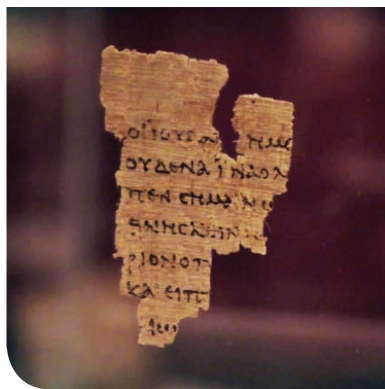 ΟΙΙΟΥΔΑ ΗΜΕ
ΟΥΔΕΝΑ ΙΝΑΟΛ
ΠΕΝ CΗΜΑΙΝΩ
ΘΝΗCΚΕΙΝ
ΡΙΟΝΟΠ
ΚΑΙΕΙΠ